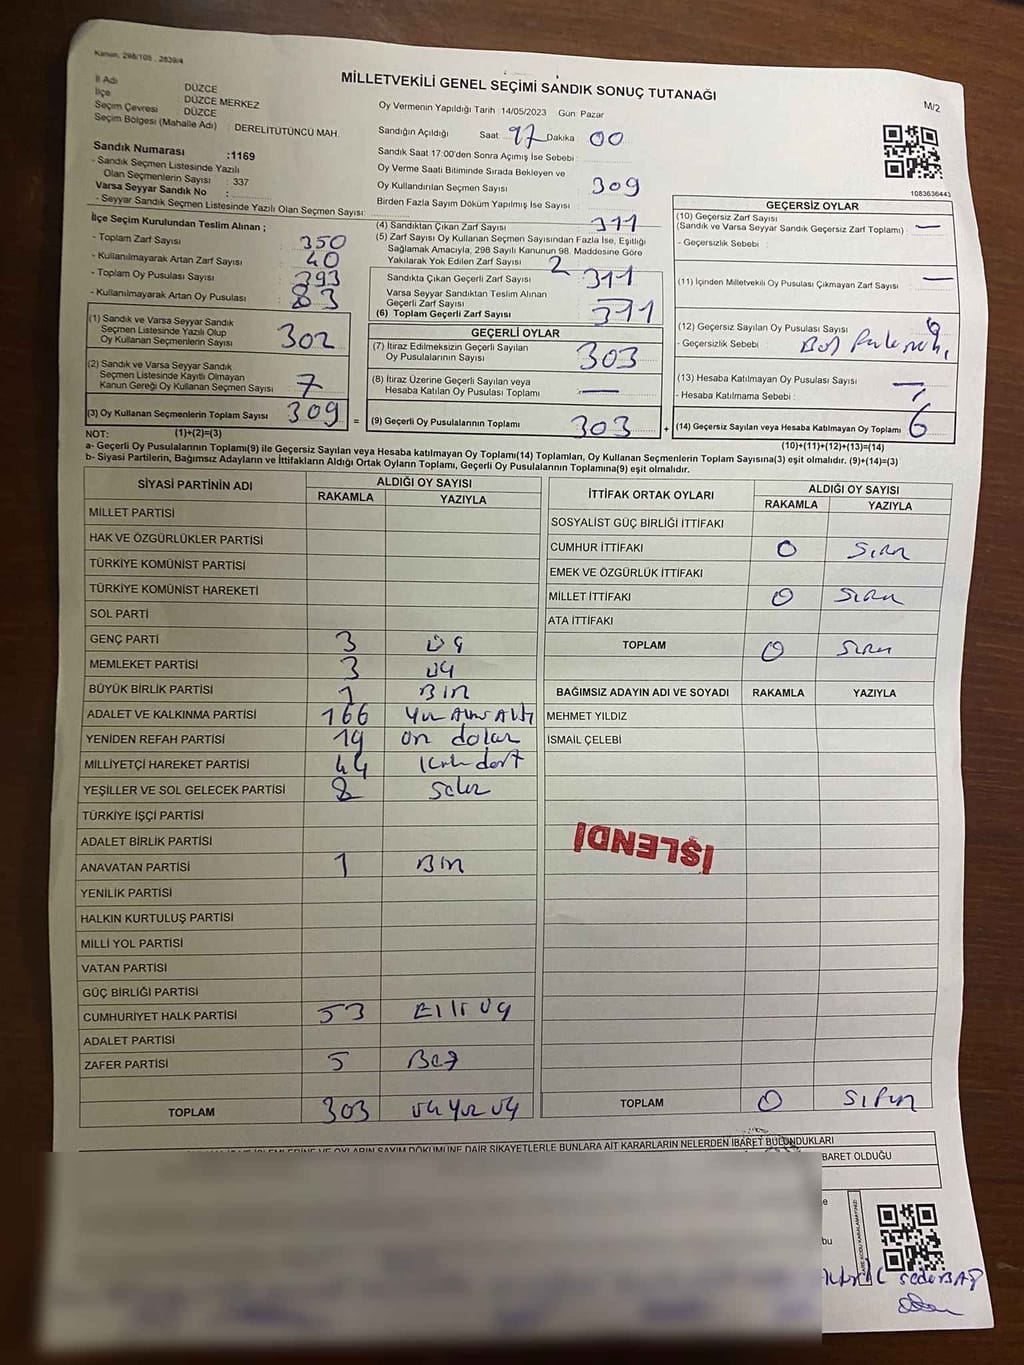 Kanun, 298/105 , 2839/4
MİLLETVEKİLİ GENEL SEÇİMİ SANDIK SONUÇ TUTANAĞI
M/2
İl Adı DÜZCE
İlçe DÜZCE MERKEZ
Seçim Çevresi DÜZCE
Seçim Bölgesi (Mahalle Adı) : DERELİTÜTÜNCÜ MAH.
Sandık Numarası :1169
- Sandık Seçmen Listesinde Yazılı
Olan Seçmenlerin Sayısı : 337
Varsa Seyyar Sandık No :
- Seyyar Sandık Seçmen Listesinde Yazılı Olan Seçmen Sayısı:
Oy Vermenin Yapıldığı Tarih :14/05/2023 Gün: Pazar
Sandığın Açıldığı Saat: 17 Dakika 00
Sandık Saat 17:00'den Sonra Açımış İse Sebebi :
Oy Verme Saati Bitiminde Sırada Bekleyen ve
Oy Kullandırılan Seçmen Sayısı : 309
Birden Fazla Sayım Döküm Yapılmış İse Sayısı :
1083636443
İlçe Seçim Kurulundan Teslim Alınan ;
- Toplam Zarf Sayısı : 350
- Kullanılmayarak Artan Zarf Sayısı : 40
- Toplam Oy Pusulası Sayısı : 393
- Kullanılmayarak Artan Oy Pusulası : 83
(1) Sandık ve Varsa Seyyar Sandık
Seçmen Listesinde Yazılı Olup
Oy Kullanan Seçmenlerin Sayısı : 302
(2) Sandık ve Varsa Seyyar Sandık
Seçmen Listesinde Kayıtlı Olmayan
Kanun Gereği Oy Kullanan Seçmen Sayısı : 7
(3) Oy Kullanan Seçmenlerin Toplam Sayısı : 309 =
(1)+(2)=(3)
(4) Sandıktan Çıkan Zarf Sayısı : 311
(5) Zarf Sayısı Oy Kullanan Seçmen Sayısından Fazla İse, Eşitliği
Sağlamak Amacıyla, 298 Sayılı Kanunun 98. Maddesine Göre
Yakılarak Yok Edilen Zarf Sayısı : 2
Sandıkta Çıkan Geçerli Zarf Sayısı : 311
Varsa Seyyar Sandıktan Teslim Alınan
Geçerli Zarf Sayısı : —
(6) Toplam Geçerli Zarf Sayısı : 311
GEÇERLİ OYLAR
(7) İtiraz Edilmeksizin Geçerli Sayılan
Oy Pusulalarının Sayısı : 303
(8) İtiraz Üzerine Geçerli Sayılan veya
Hesaba Katılan Oy Pusulası Toplamı : —
(9) Geçerli Oy Pusulalarının Toplamı : 303 +
GEÇERSİZ OYLAR
(10) Geçersiz Zarf Sayısı
(Sandık ve Varsa Seyyar Sandık Geçersiz Zarf Toplamı) : —
- Geçersizlik Sebebi :
(11) İçinden Milletvekili Oy Pusulası Çıkmayan Zarf Sayısı : —
(12) Geçersiz Sayılan Oy Pusulası Sayısı : 6
- Geçersizlik Sebebi : Boş
(13) Hesaba Katılmayan Oy Pusulası Sayısı : —
- Hesaba Katılmama Sebebi :
(14) Geçersiz Sayılan veya Hesaba Katılmayan Oy Toplamı : 6
(10)+(11)+(12)+(13)=(14)
NOT:
a- Geçerli Oy Pusulalarının Toplamı(9) ile Geçersiz Sayılan veya Hesaba katılmayan Oy Toplamı(14) Toplamları, Oy Kullanan Seçmenlerin Toplam Sayısına(3) eşit olmalıdır. (9)+(14)=(3)
b- Siyasi Partilerin, Bağımsız Adayların ve İttifakların Aldığı Ortak Oyların Toplamı, Geçerli Oy Pusulalarının Toplamına(9) eşit olmalıdır.
SİYASİ PARTİNİN ADI ALDIĞI OY SAYISI
RAKAMLA YAZIYLA
MİLLET PARTİSİ
HAK VE ÖZGÜRLÜKLER PARTİSİ
TÜRKİYE KOMÜNİST PARTİSİ
TÜRKİYE KOMÜNİST HAREKETİ
SOL PARTİ
GENÇ PARTİ 3 üç
MEMLEKET PARTİSİ 3 üç
BÜYÜK BİRLİK PARTİSİ 1 Bir
ADALET VE KALKINMA PARTİSİ 166 Yüz Altmış Altı
YENİDEN REFAH PARTİSİ 19 on dokuz
MİLLİYETÇİ HAREKET PARTİSİ 44 kırk dört
YEŞİLLER VE SOL GELECEK PARTİSİ 8 sekiz
TÜRKİYE İŞÇİ PARTİSİ
ADALET BİRLİK PARTİSİ
ANAVATAN PARTİSİ 1 Bir
YENİLİK PARTİSİ
HALKIN KURTULUŞ PARTİSİ
MİLLİ YOL PARTİSİ
VATAN PARTİSİ
GÜÇ BİRLİĞİ PARTİSİ
CUMHURİYET HALK PARTİSİ 53 Elli üç
ADALET PARTİSİ
ZAFER PARTİSİ 5 Beş
TOPLAM 303 üç yüz üç
İTTİFAK ORTAK OYLARI ALDIĞI OY SAYISI
RAKAMLA YAZIYLA
SOSYALİST GÜÇ BİRLİĞİ İTTİFAKI
CUMHUR İTTİFAKI 0 Sıfır
EMEK VE ÖZGÜRLÜK İTTİFAKI
MİLLET İTTİFAKI 0 Sıfır
ATA İTTİFAKI
TOPLAM 0 Sıfır
BAĞIMSIZ ADAYIN ADI VE SOYADI RAKAMLA YAZIYLA
MEHMET YILDIZ
İSMAİL ÇELEBİ
İŞLENDİ
TOPLAM 0 Sıfır
OYLARIN SAYIM DÖKÜMÜNE DAİR ŞİKAYETLERLE BUNLARA AİT KARARLARIN NELERDEN İBARET BULUNDUKLARI
BARET OLDUĞU
KARE KODU KARALAMAYINIZ